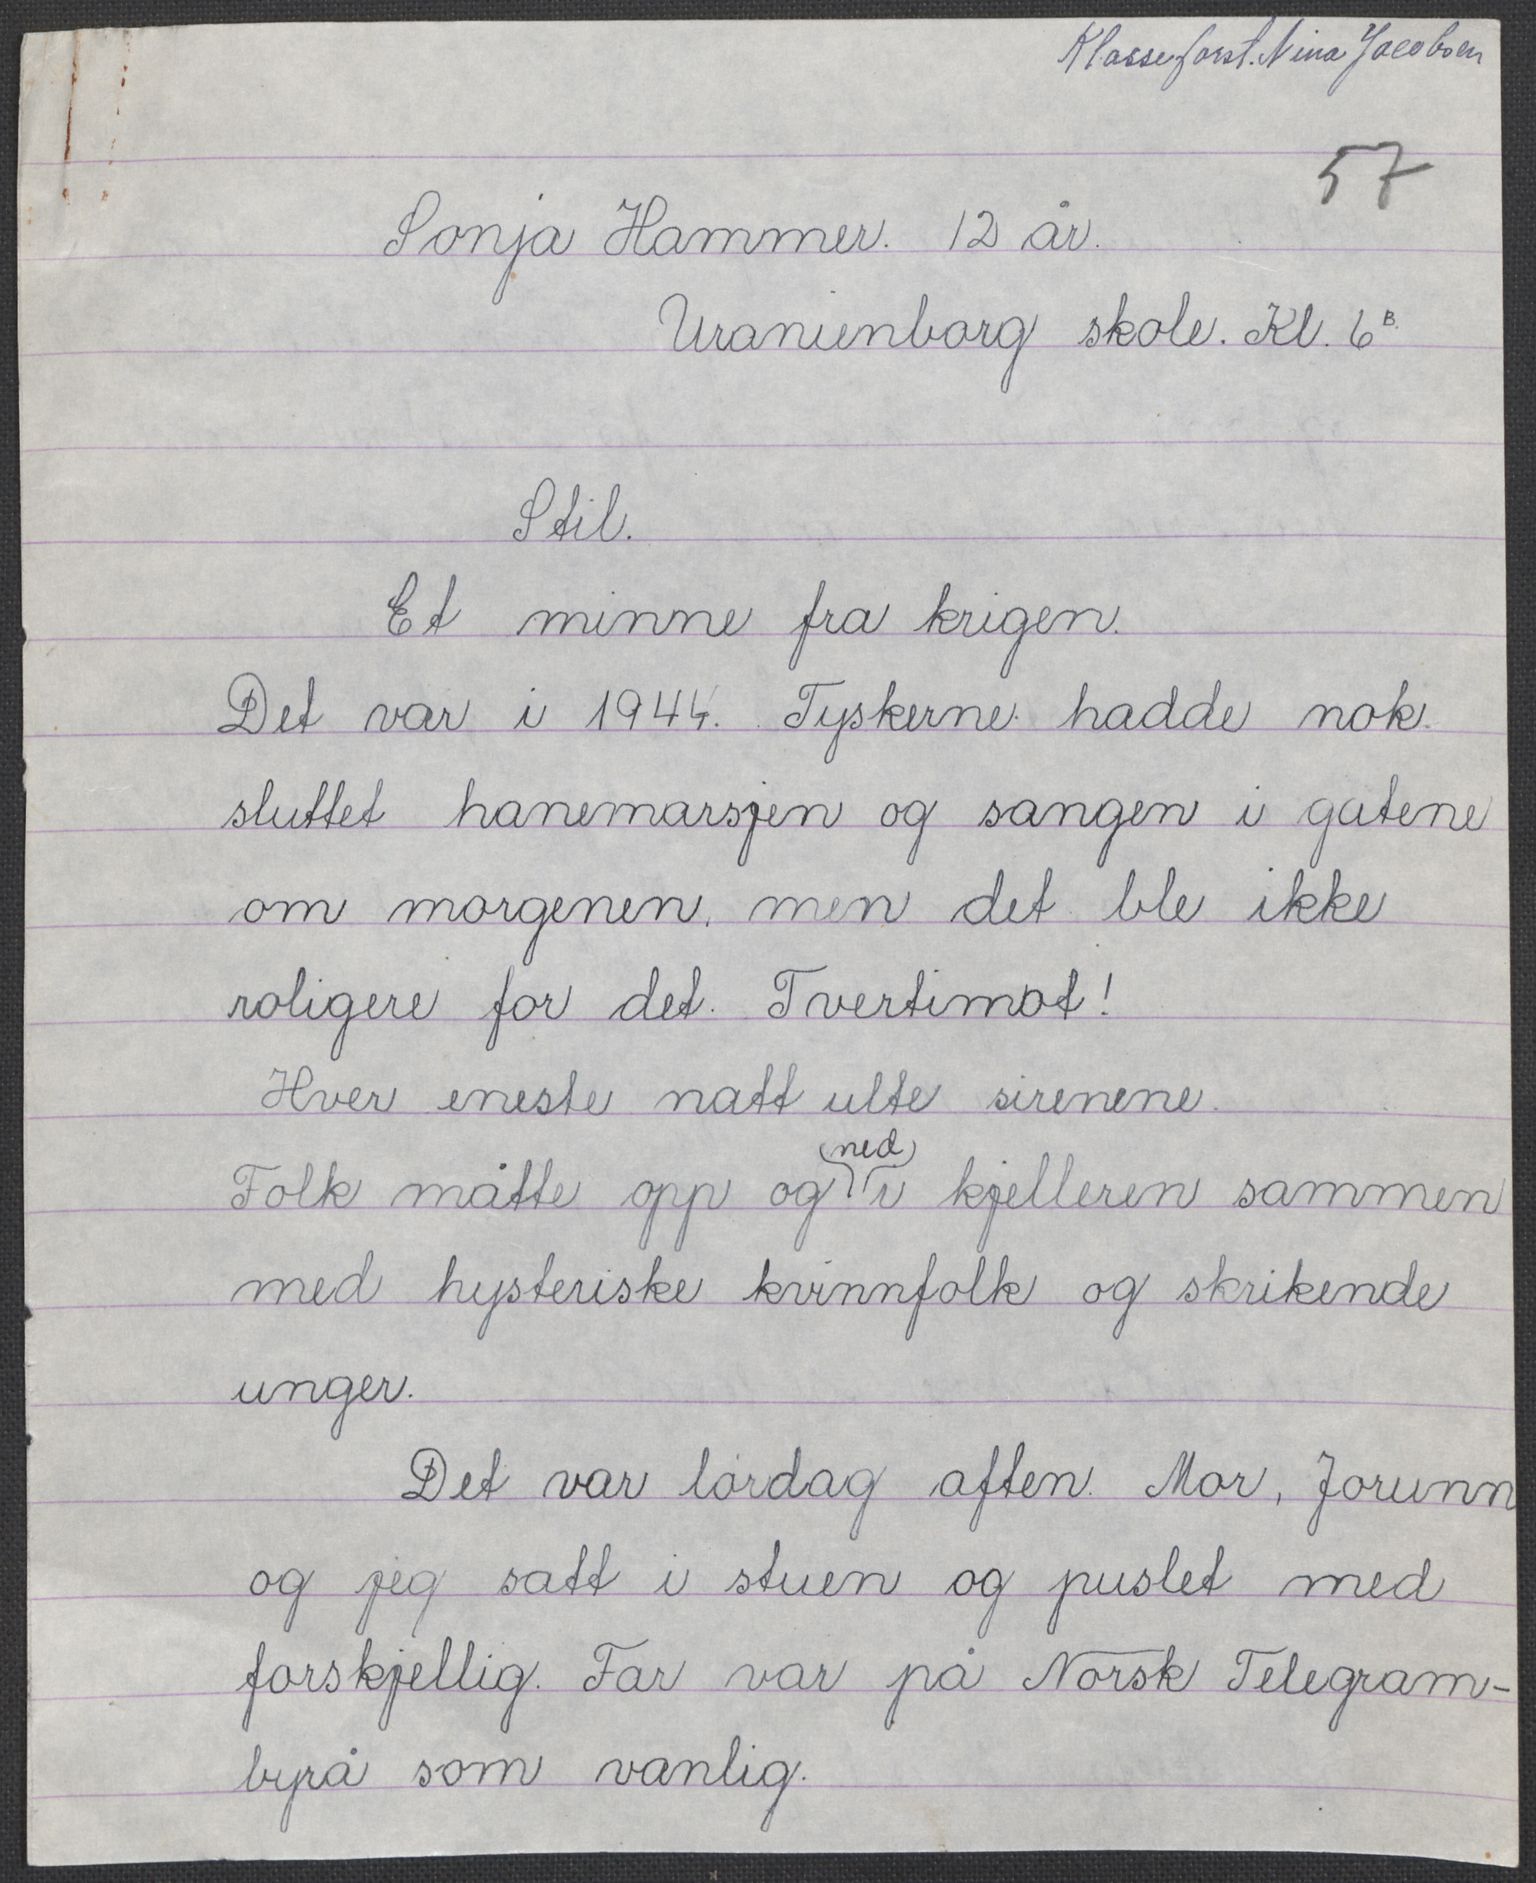 Klasseforst. Nina Jacobsen
57
Sonja Hammer. 12 år.
Uranienborg skole. Kl. 6 B.
Stil.
Et minne fra krigen.
Det var i 1944. Tyskerne hadde nok
sluttet hanemarsjen og sangen i gatene
om morgenen, men det ble ikke
roligere for det. Tvertimot!
Hver eneste natt ulte sirenene.
Folk måtte opp og ned i kjelleren sammen
med hysteriske kvinnfolk og skrikende
unger.
Det var lørdag aften. Mor, Jorunn
og jeg satt i stuen og puslet med
forskjellig. Far var på Norsk Telegram-
byrå som vanlig.